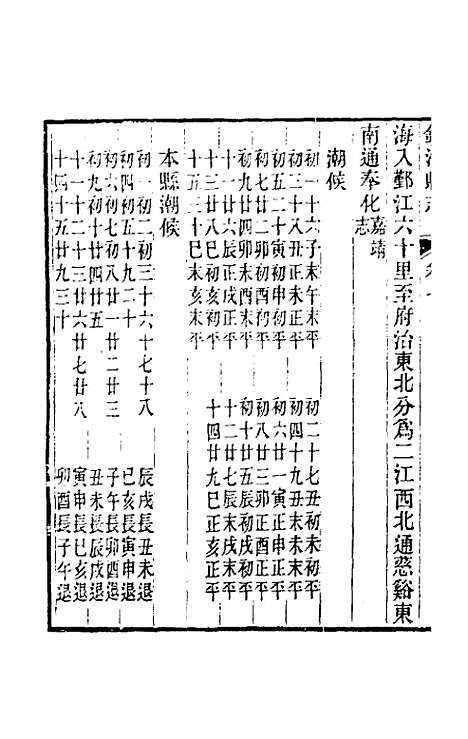 海入鄞江六十里至府治東北分爲二江西北通慈谿東
南通奉化嘉靖志
潮候
初一十六子末午末平 初二十七丑初未初平
初三十八丑正未正平 初四十九丑末未末平
初五二十寅初申初平 初六廿一寅正申正平
初七廿二卯初酉初平 初八廿三卯正酉正平
初九廿四卯末酉末平 初十廿五辰初戌初平
十一廿六辰正戌正平 十二廿七辰末戌末平
十三廿八巳初亥初平 十四廿九巳正亥正平
十五三十巳末亥末平
本縣潮候
初一初二初三十六十七十八 辰戌長丑未退
初四初五十九二十 巳亥長寅申退
初六初七初八廿一廿二廿三 子午長卯酉退
初九初十廿四廿五 丑未長辰戌退
十一十二十三廿六廿七廿八 寅申長巳亥退
十四十五廿九三十 卯酉長子午退